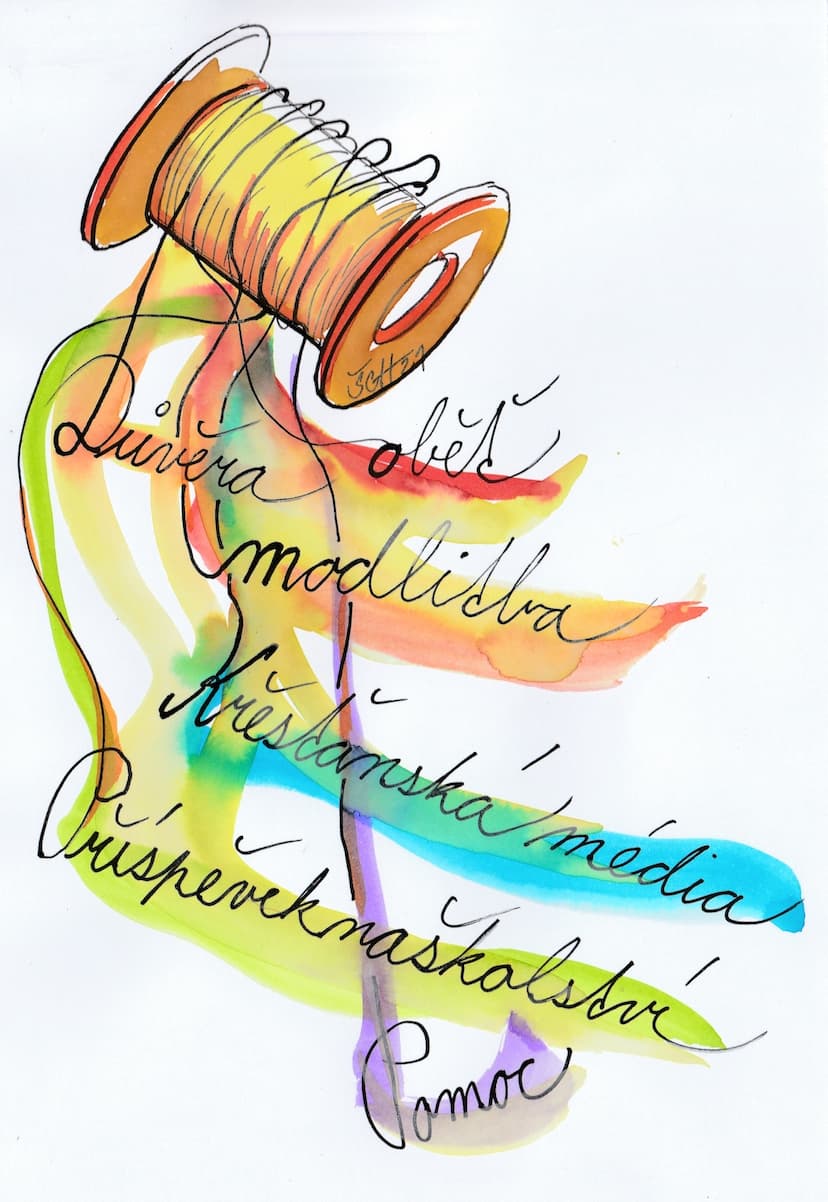 Důvěra oběť
modlitba
Křesťanská média
Příspěvek na školství
Pomoc